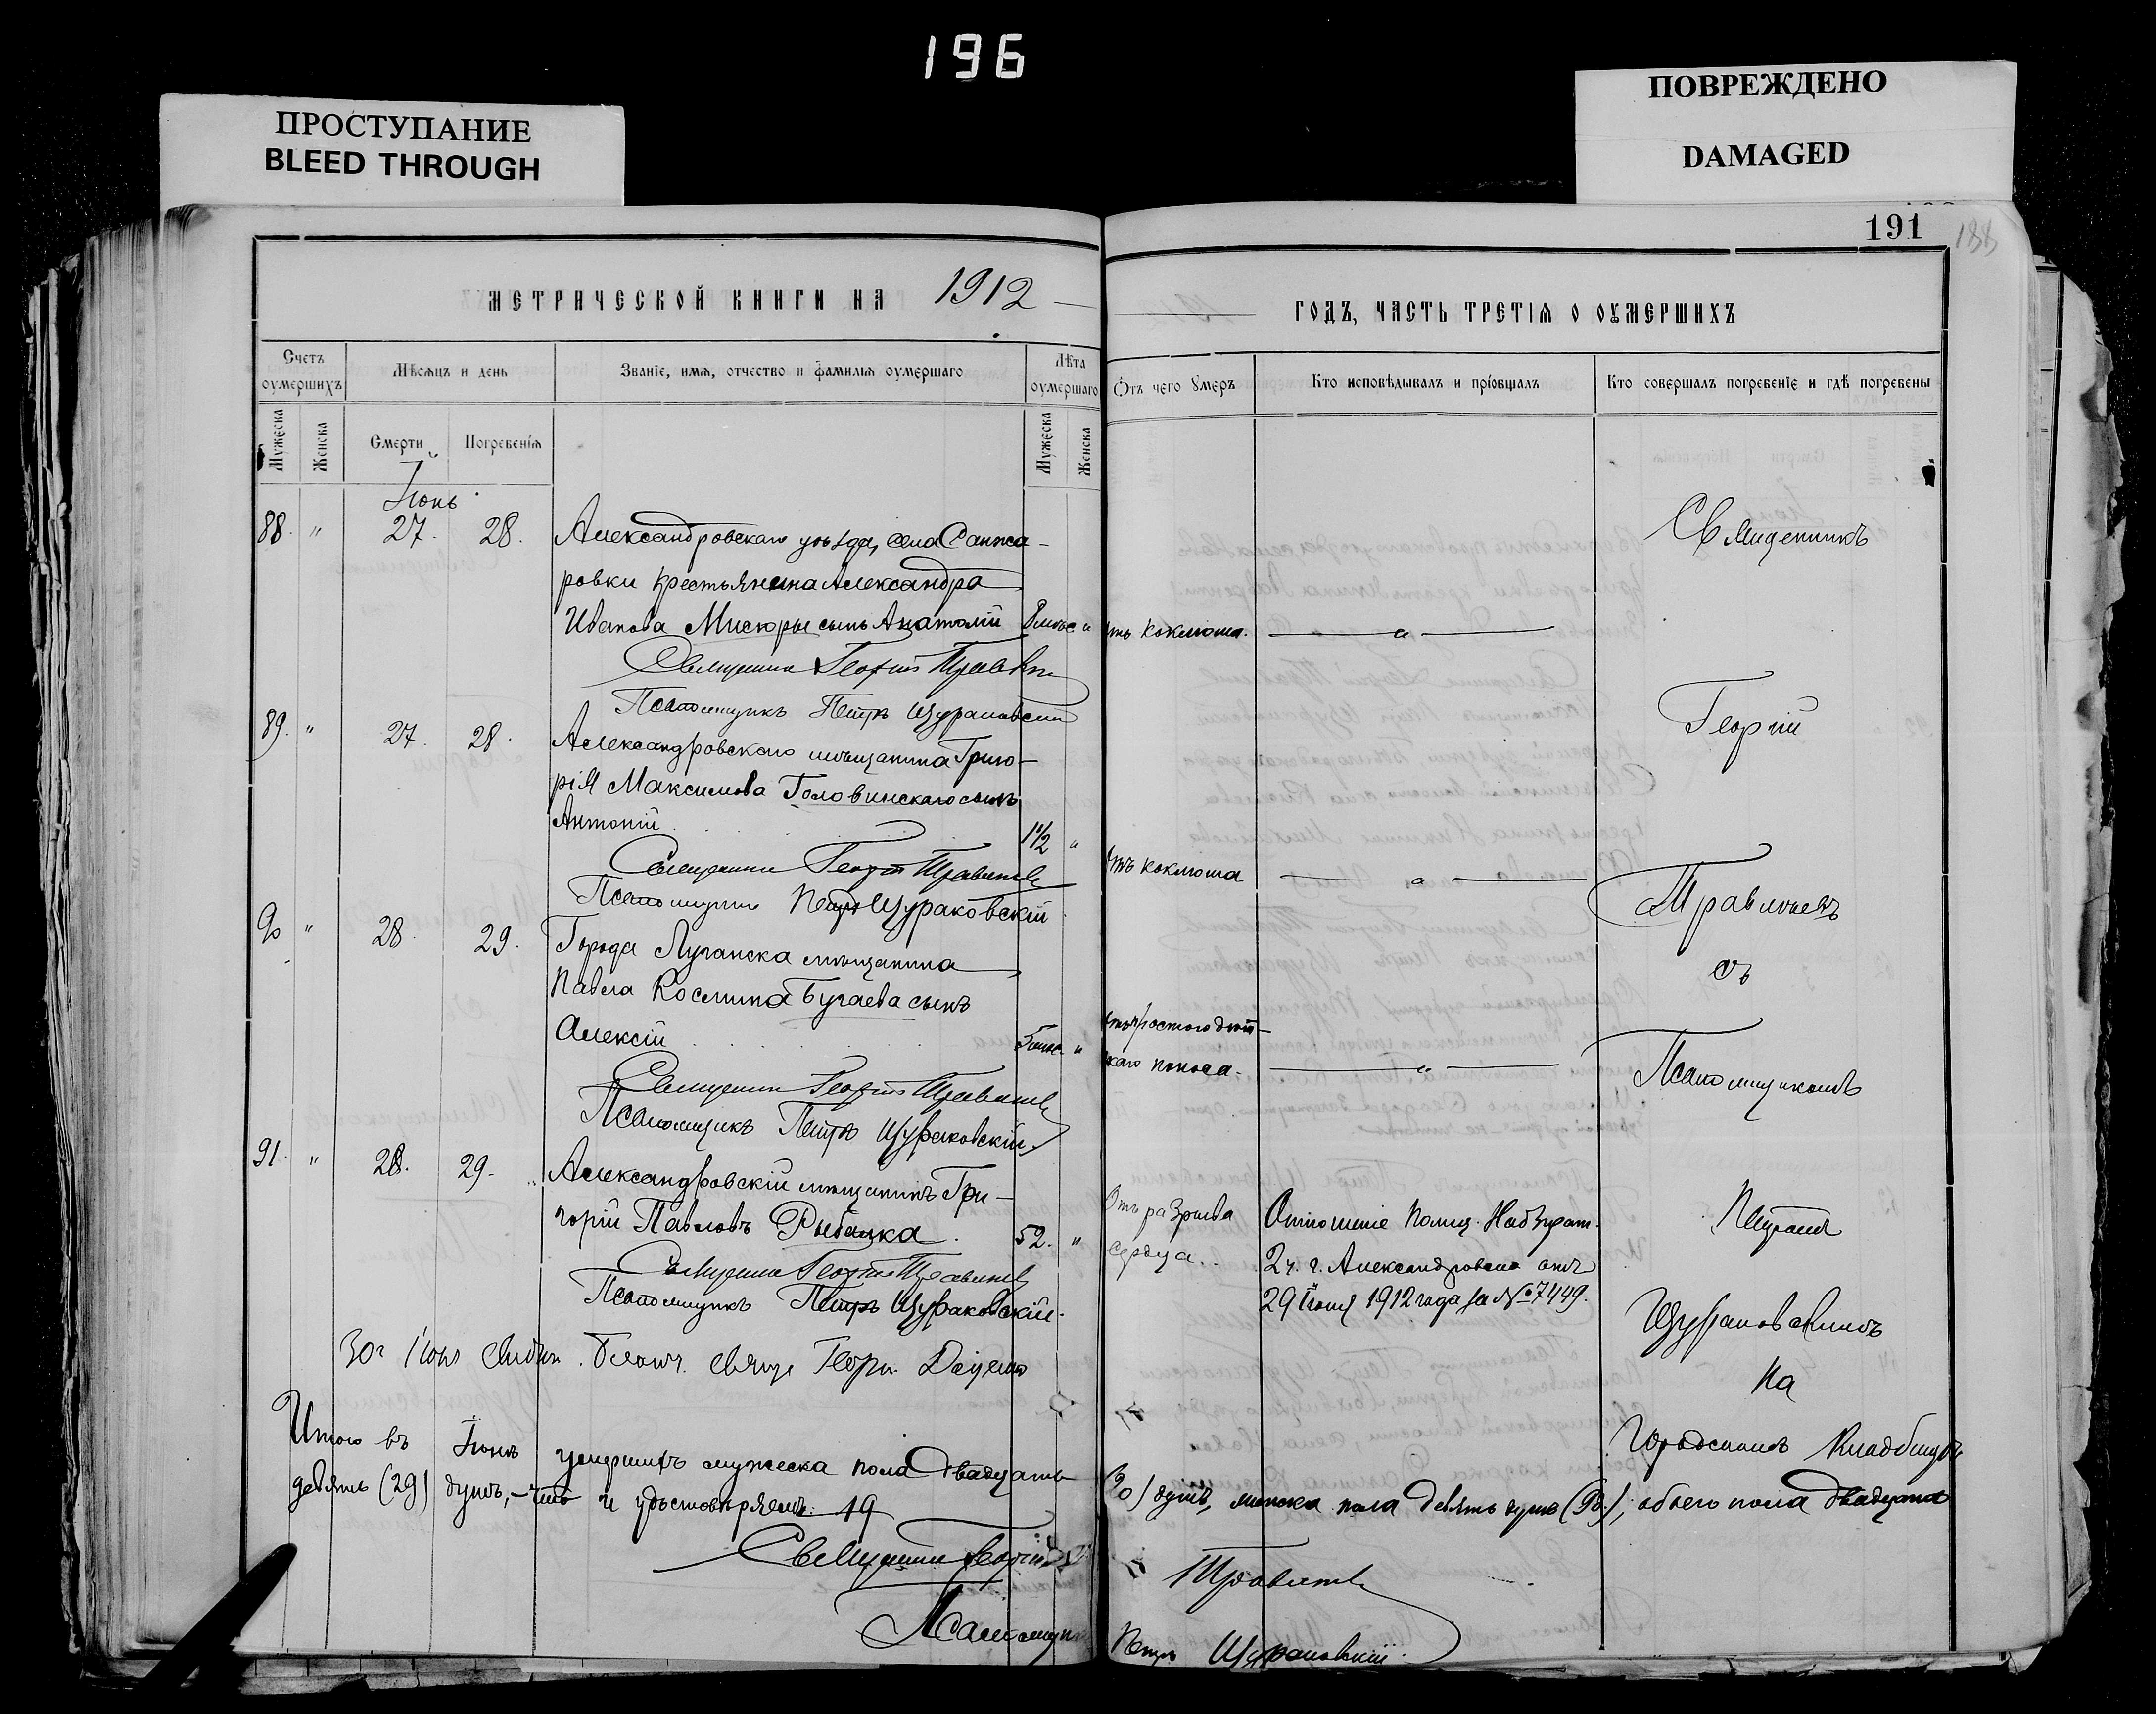 196
ПРОСТУПАНИЕ
BLEED THROUGH
ПОВРЕЖДЕНО
DAMAGED
191
188
МЕТРИЧЕСКОЙ КНИГИ НА 1912
ГОДЪ, ЧАСТЬ ТРЕТІЯ О ОУМЕРШИХЪ
Счетъ оумершихъ
Мѣсяцъ и день
Званіе, имя, отчество и фамилія оумершаго
Лѣта оумершаго
Отъ чего умеръ
Кто исповѣдывалъ и пріобщалъ
Кто совершалъ погребеніе и гдѣ погребены
Мужеска
Женска
Смерти
Погребенія
Мужеска
Женска
Іюнь
88. " 27. 28. Александровскаго уѣзда, села Санжа-
ровки крестьянина Александра
Иванова Мискоры сынъ Анатолій 8 мѣс "
отъ коклюша. — " —
Священникъ Георгій
Псаломщикъ Петръ Щураковскій
89. " 27. 28. Александровскаго мѣщанина Григо-
рія Максимова Головинскаго сынъ
Антоній 1 1/2 "
отъ коклюша — " —
Священникъ Георгій
Псаломщикъ Петръ Щураковскій
90 " 28 29. Города Луганска мѣщанина
Павла Космина Бугаева сынъ
Алексій 5 мѣс. "
отъ простого дѣт-
скаго поноса. — " —
Священникъ Георгій
Псаломщикъ Петръ Щураковскій
91. " 28. 29. Александровскій мѣщанинъ Гри-
горій Павловъ Рыбалка. 52. "
Отъ разрыва
сердца.
Отношеніе Полиц. Надзират.
2 ч. г. Александровска отъ
29 Іюня 1912 года за № 7449.
Священникъ Георгій
Псаломщикъ Петръ Щураковскій.
Священникъ
Георгій
съ
Псаломщикомъ
Петромъ
Щураковскимъ
на
Городскомъ кладбищѣ
30 Іюня Георг.
Итого въ Іюнѣ умершихъ мужеска пола двадцать
(20) душъ, женска пола девять душъ (9), обоего пола двадцать
девять (29) душъ, – что и удостовѣряемъ: 19
Священникъ Георгій
Псаломщикъ Петръ Щураковскій.